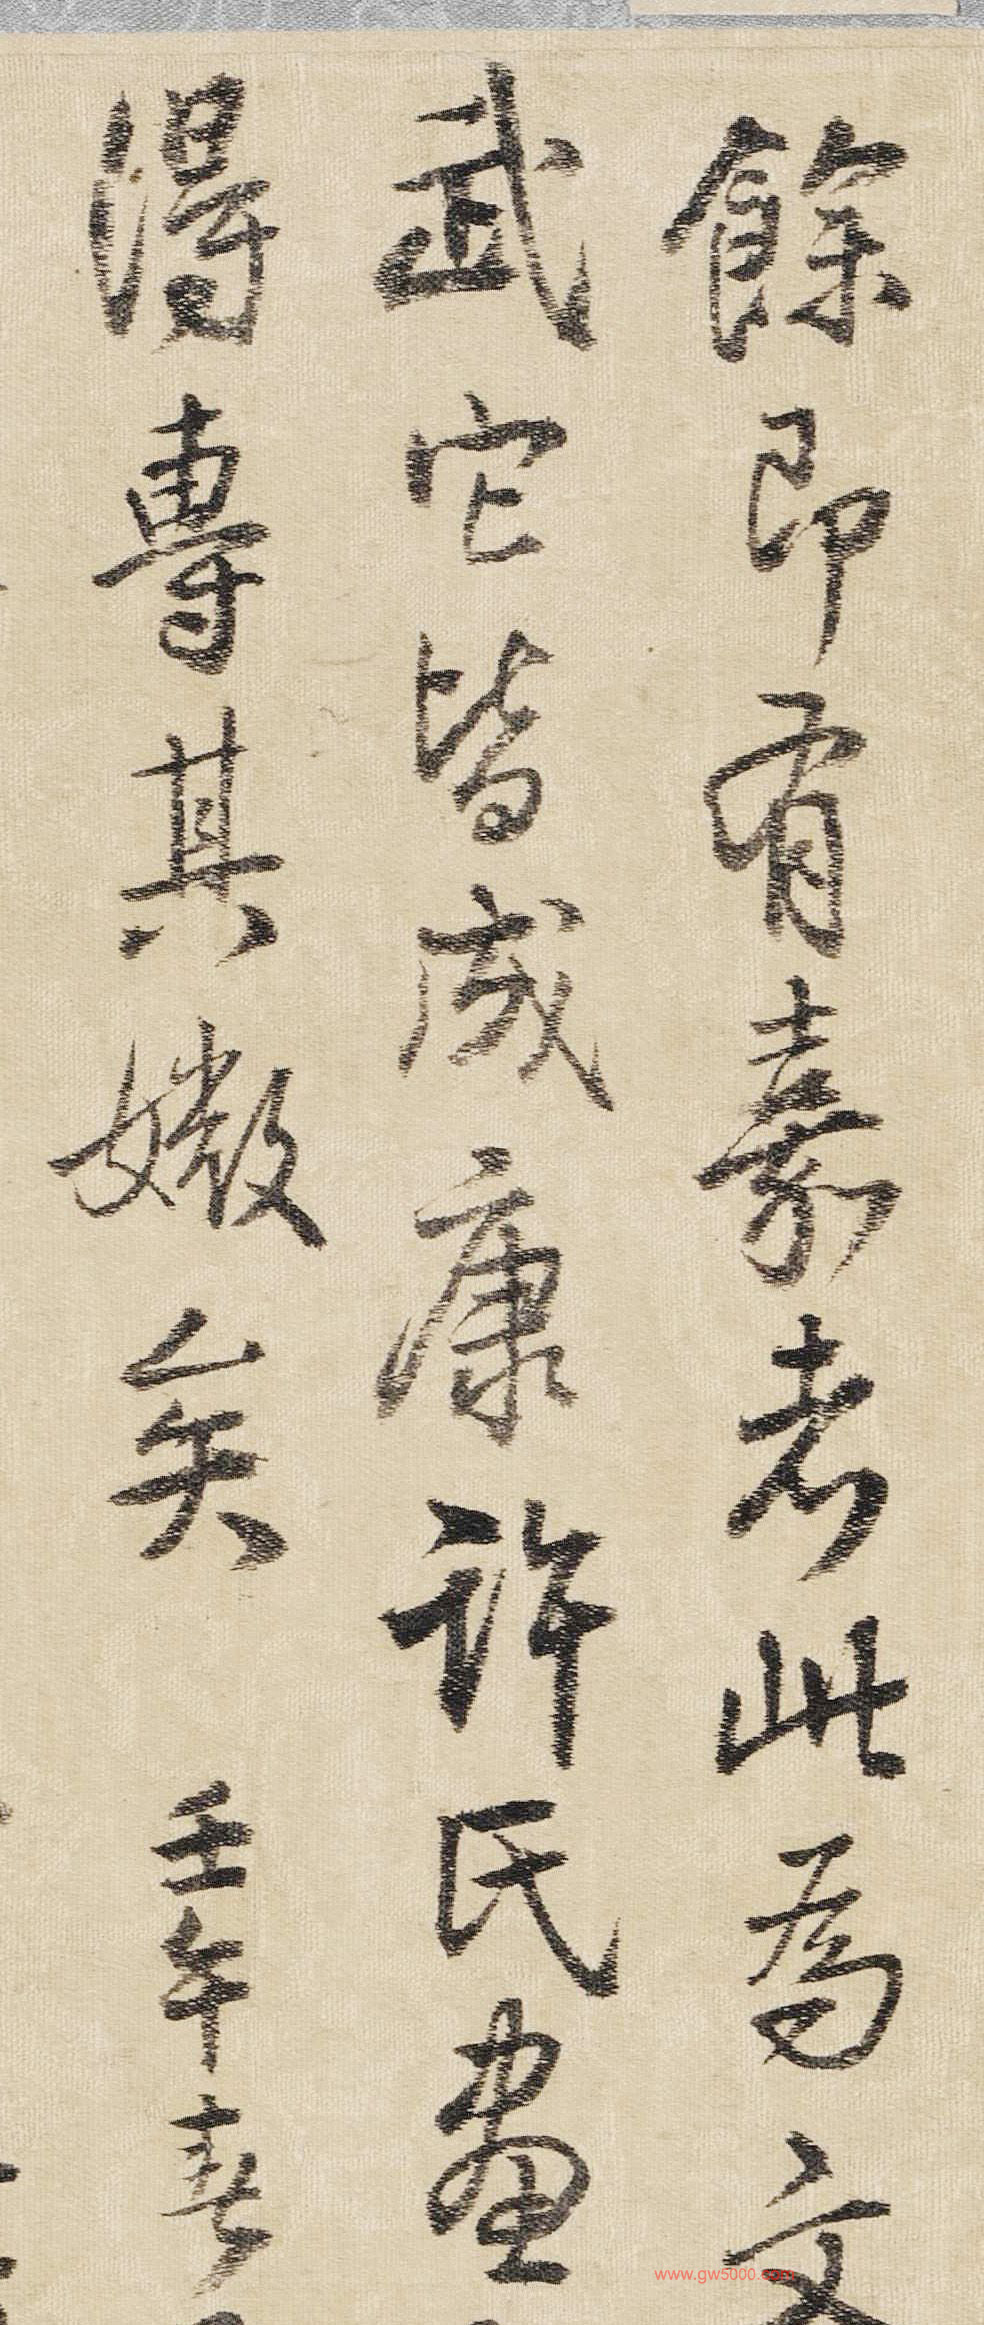 餘即有嘉者此為文
武它皆成康許氏畫
得專其媺矣 壬午春
www.gw5000.com